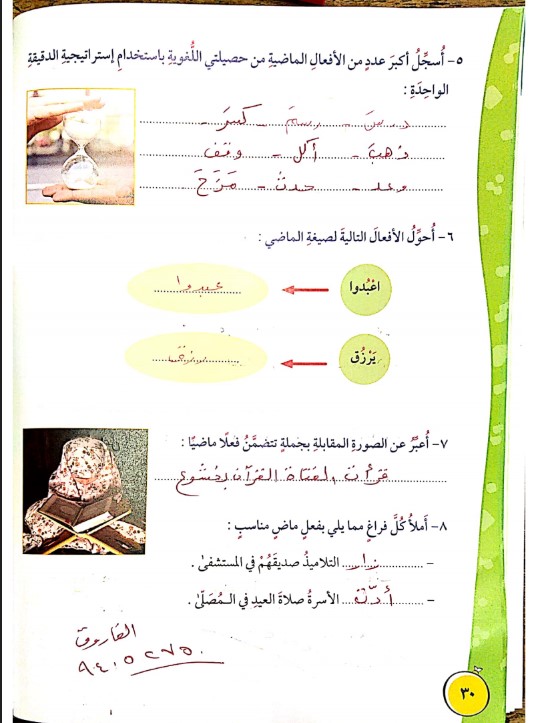 ٥- أُسجِّلُ أكبرَ عددٍ من الأفعالِ الماضيةِ من حصيلتي اللُّغويةِ باستخدامِ إستراتيجيةِ الدقيقةِ
الواحِدَةِ :
درسَ - رسمَ - كسرَ -
ذهبَ - أكل - وقف
وعد - حدث - مَزَحَ
٦- أُحوِّلُ الأفعالَ التاليةَ لصيغةِ الماضي :
اعْبُدوا
عبدوا
يَرْزُق
٧- أُعبِّرُ عن الصورةِ المقابلةِ بجملةٍ تتضمَّنُ فعلًا ماضيًا :
قرأت الفتاة القرآن بخشوع
٨- أملأُ كُلَّ فراغٍ مما يلي بفعلٍ ماضٍ مناسبٍ :
- زار التلاميذُ صديقَهُمْ في المستشفىٰ .
- أدّت الأسرةُ صلاةَ العيدِ في الـمُصَلّىٰ .
الفاروق
٩٤٠٥٢٧٥٠
٣٠